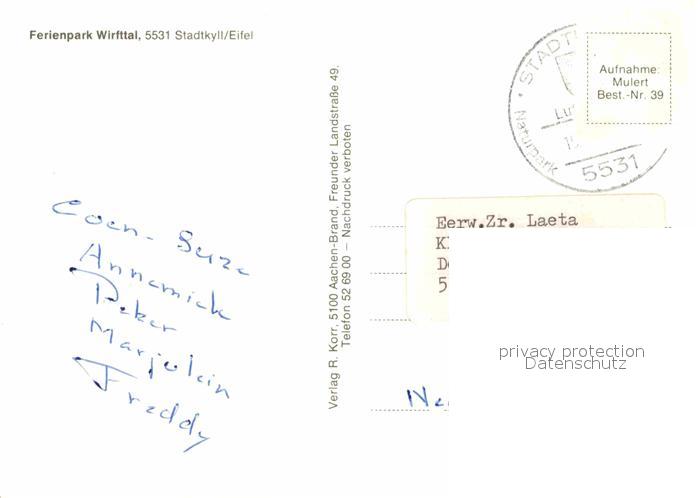 Ferienpark Wirfttal, 5531 Stadtkyll/Eifel
STADT
Naturpark
5531
Aufnahme:
Mulert
Best.-Nr. 39
Verlag R. Korr, 5100 Aachen-Brand, Freunder Landstraße 49.
Telefon 52 69 00 – Nachdruck verboten
Coen - Suze
Annemiek
Peter
Marjolein
Freddy
Eerw.Zr. Laeta
K
D
5
Ne
privacy protection
Datenschutz